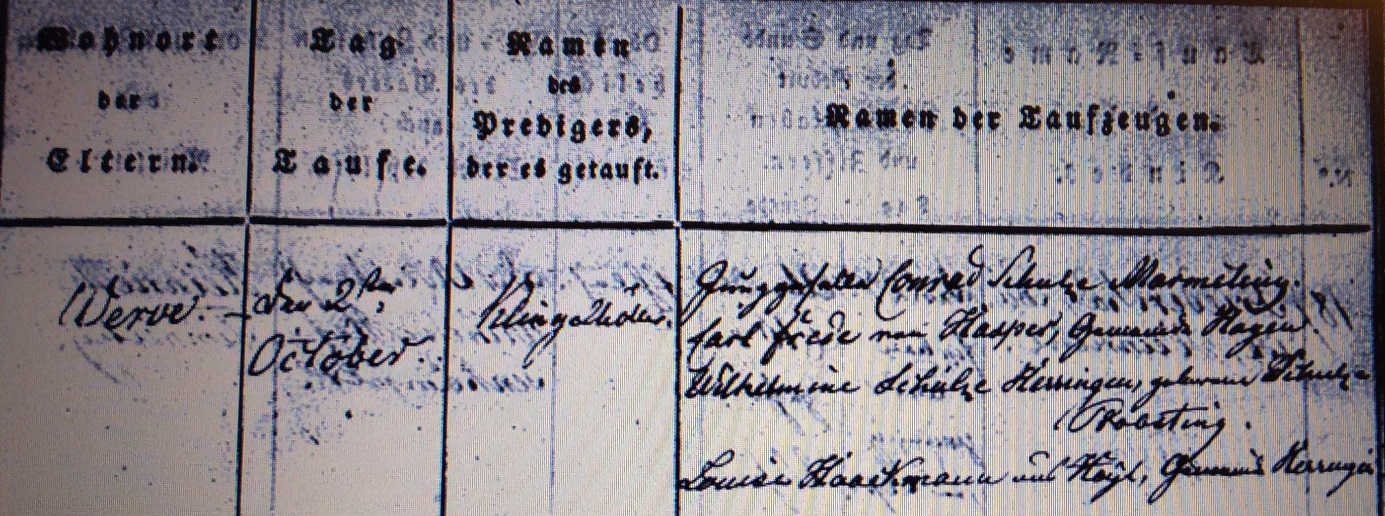 Wohnort
der
Eltern.
Tag
der
Taufe.
Namen
des
Predigers,
der es getauft.
Namen der Taufzeugen.
Werve.
den 2ten
October.
Junggeselle Conrad Schulze Marmeling.
Carl Friede von Haspes, Gemeinde Hagen.
Wilhelmine Schulze Herringen, geborene Schulze
Pröbsting.
Louise Haackmann aus Heyl, Gemeinde Herringen